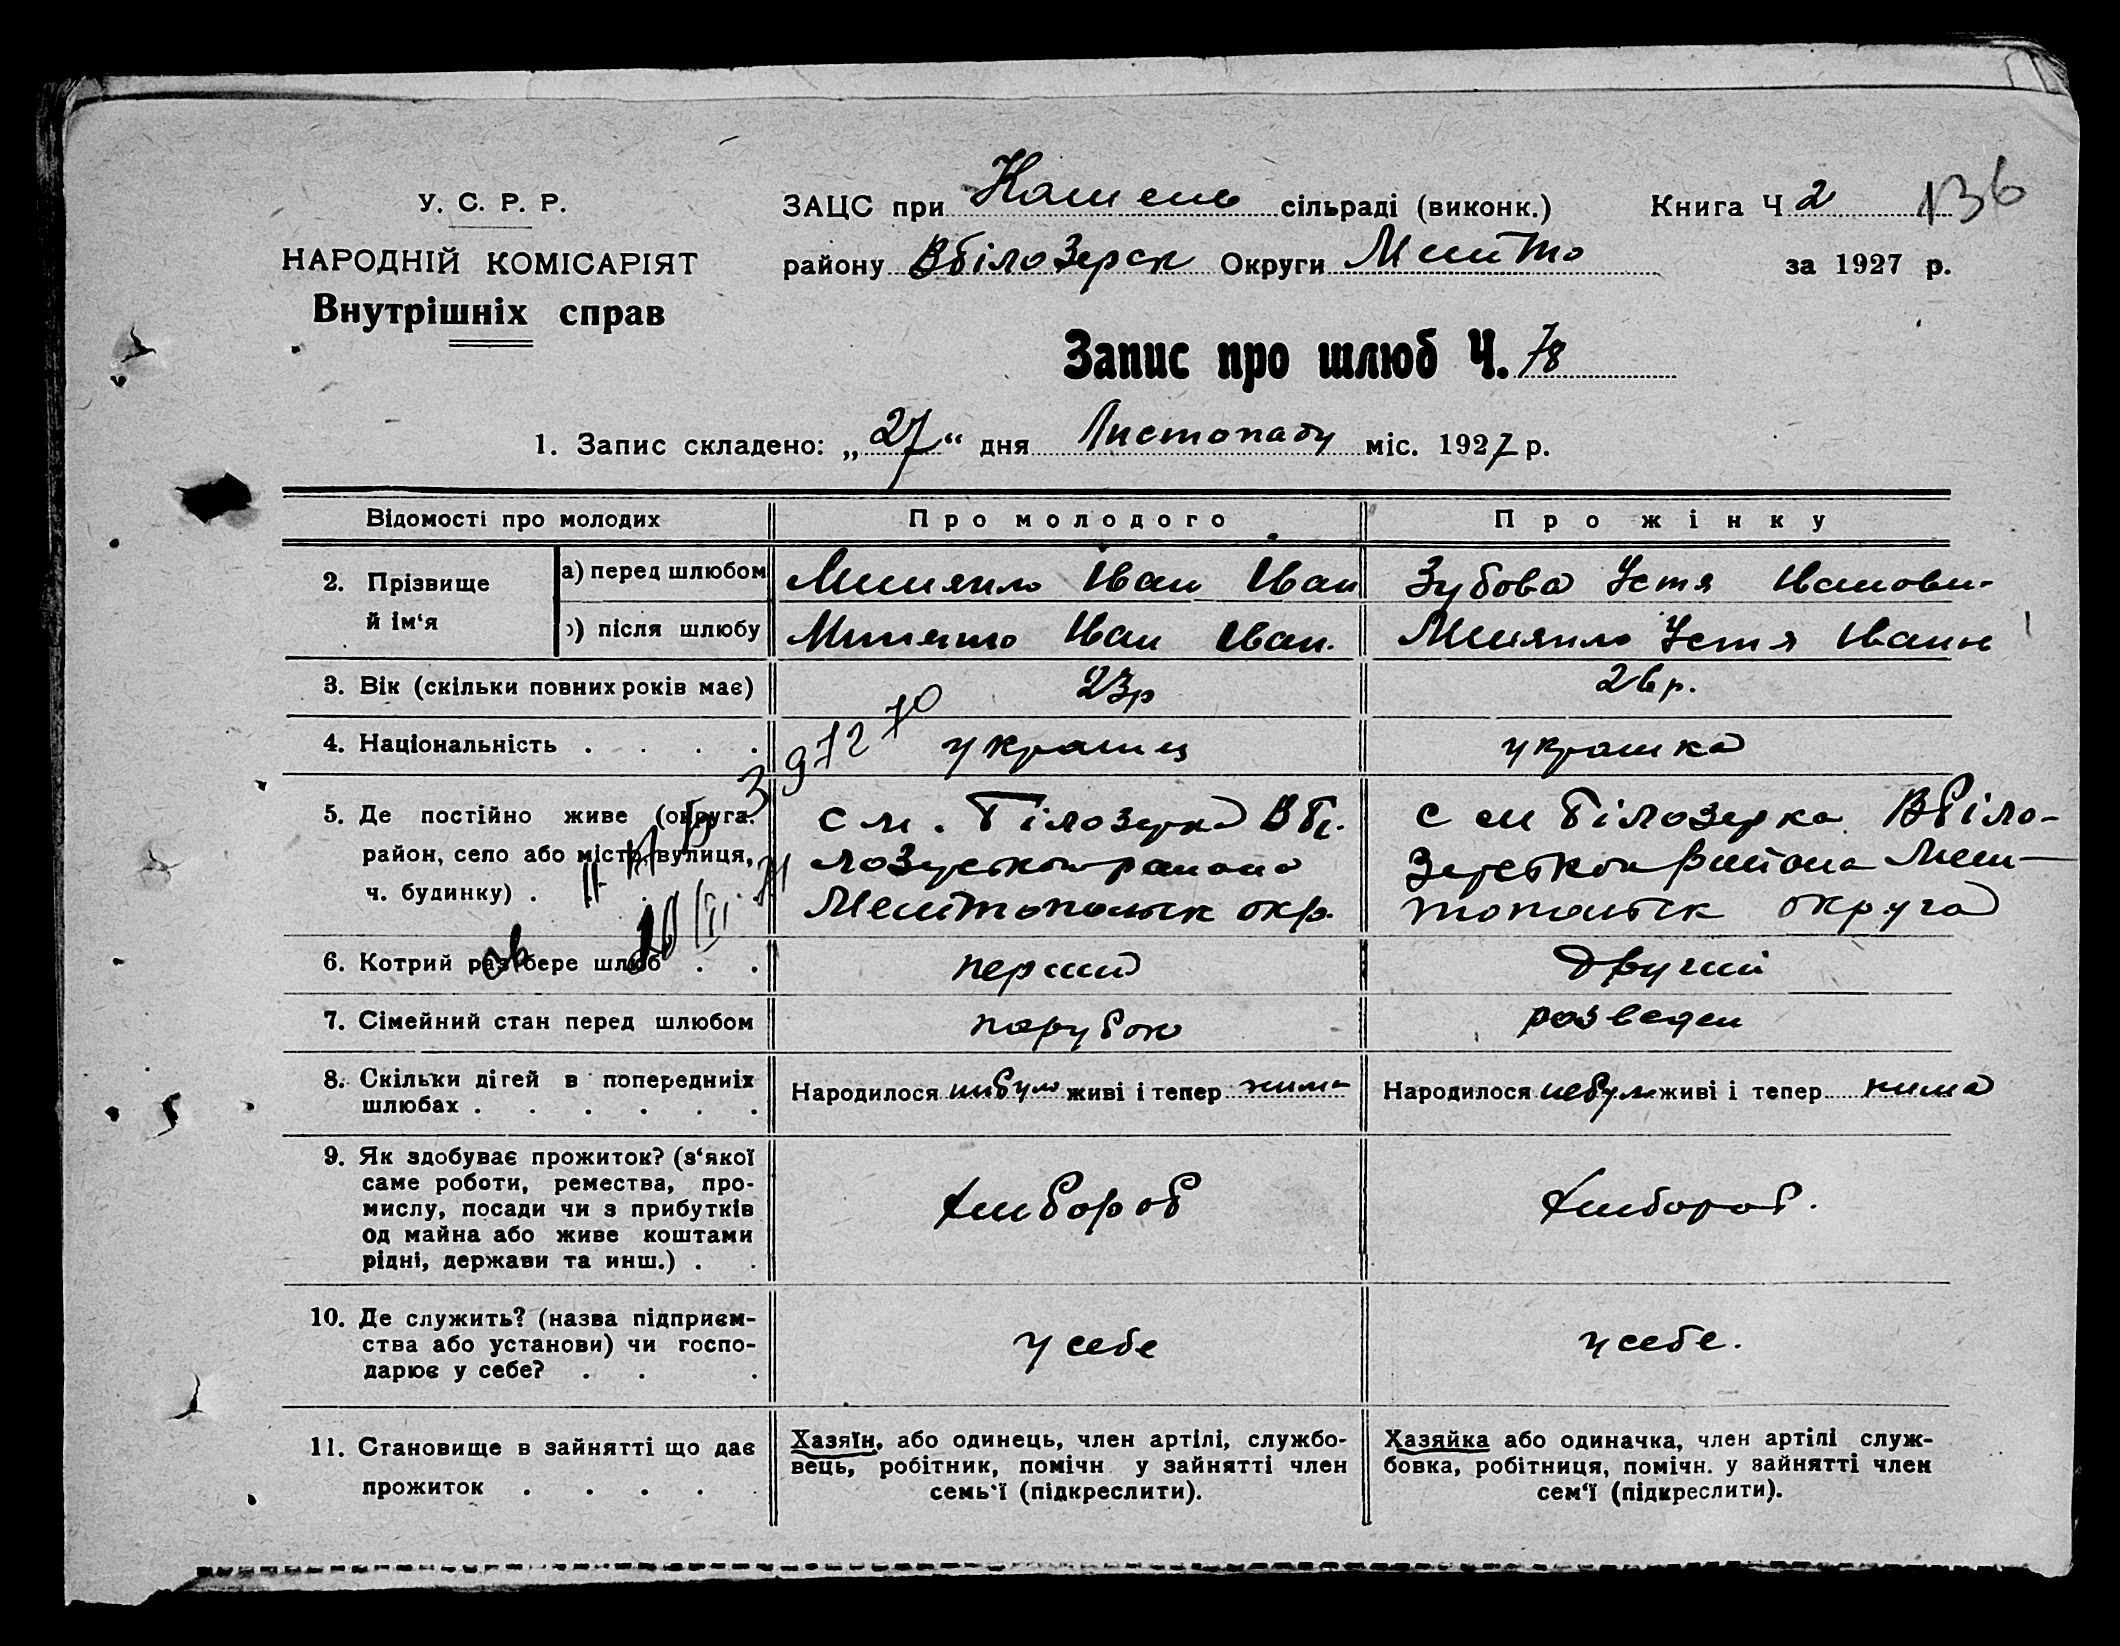 У. С. Р. Р.
НАРОДНІЙ КОМІСАРІЯТ
Внутрішніх справ
ЗАЦС при сільраді (виконк.) Книга Ч 2 136
району Вбілозерск Округи за 1927 р.
Запис про шлюб Ч. 78
1. Запис складено: „27“ дня Листопаду міс. 1927 р.
Відомості про молодих Про молодого Про жінку
2. Прізвище й ім‘я
а) перед шлюбом Іван Іван Зубова Устя Іванови-
) після шлюбу Іван Іван. Устя Іванн
3. Вік (скільки повних років має) 23р 26р.
4. Національність . . . . украинц украинка
5. Де постійно живе (округа,
район, село або місто, вулиця,
ч. будинку) .
с м. Білозерка Вбі-
лозерськой району
Мелитопольск окр.
с м Білозерка Вбіло-
Зерськой района Мели-
топольск округа
6. Котрий раз бере шлюб . . перший другий
7. Сімейний стан перед шлюбом парубок розведен
8. Скільки дітей в попередниіх
шлюбах . . . . . .
Народилося небуло живі і тепер нима
Народилося небуло живі і тепер нима
9. Як здобуває прожиток? (з‘якої
саме роботи, ремества, про-
мислу, посади чи з прибутків
од майна або живе коштами
рідні, держави та инш.) . .
хлибороб
хлибороб.
10. Де служить? (назва підприєм-
ства або установи) чи госпо-
дарює у себе? . . .
у себе
у себе.
11. Становище в зайнятті що дає
прожиток . . . .
Хазяїн, або одинець, член артілі, службо-
вець, робітник, помічн у зайнятті член
семь‘ї (підкреслити).
Хазяйка або одиначка, член артілі служ-
бовка, робітниця, помічн. у зайнятті член
сем‘ї (підкреслити).